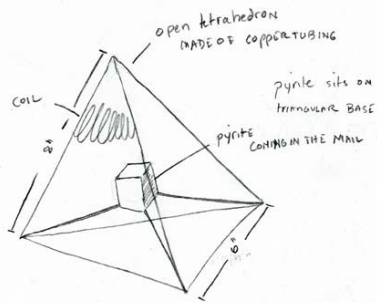 open tetrahedron
MADE OF COPPER TUBING
pyrite sits on
TRIANGULAR BASE
COIL
pyrite
COMING IN THE MAIL
8"
6"